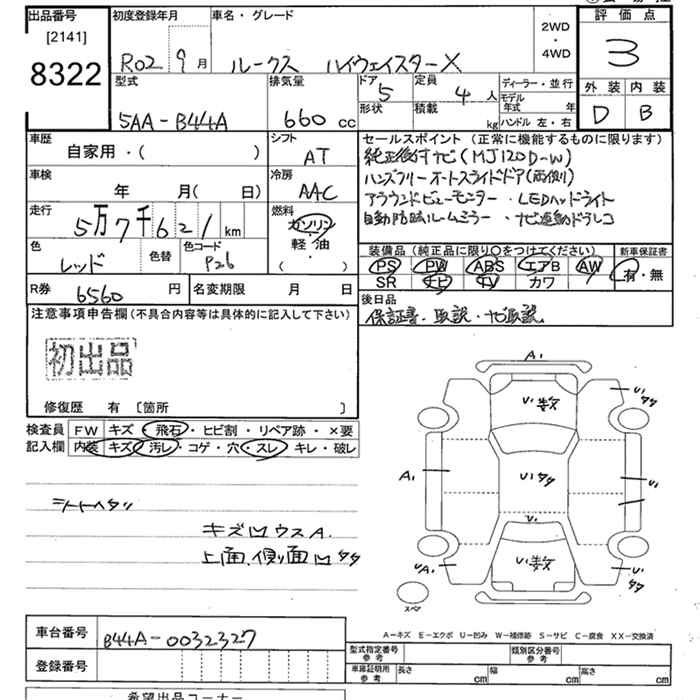 出品番号
[2141]
8322
初度登録年月
R02 9 月
車名・グレード
ルークス ハイウェイスターX
2WD
・
4WD
評価点
3
型式
5AA-B44A
排気量
660 cc
ドア
5
定員
4 人
形状
積載
kg
ディーラー・並行
モデル年式 年
ハンドル 左・右
外装 内装
D B
車歴
自家用・( )
シフト
AT
車検
年 月( 日)
冷房
AAC
走行
5万7千621km
燃料
ガソリン
・
軽油
( ・ )
色
レッド
色替
色コード
P26
R券
6560 円
名変期限 月 日
セールスポイント (正常に機能するものに限ります)
純正後付ナビ(MJ120D-W)
ハンズフリーオートスライドドア(両側)
アラウンドビューモニター・LEDヘッドライト
自動防眩ルームミラー・ナビ連動ドラレコ
装備品 (純正品に限り○をつけてください)
PS PW ABS エアB AW
SR ナビ TV カワ
新車保証書
有・無
後日品
保証書・取説・ナビ取説
注意事項申告欄 (不具合内容等は具体的に記入して下さい)
初出品
修復歴 有 [箇所 ]
検査員記入欄
FW キズ・飛石・ヒビ割・リペア跡・×要
内装 キズ・汚レ・コゲ・穴・スレ・キレ・破レ
シートヘタリ
キズ凹ウスA.
上面、側面凹タタ
A1
U1 数
U1
タタ
A1
U1タタ
U1
U1
U1 数
UA1
U1
タタ
スペア
A-キズ E-エクボ U-凹み W-補修跡 S-サビ C-腐食 XX-交換済
車台番号
B44A-0032327
登録番号
型式指定番号
参考
類別区分番号
参考
車庫証明用
参考
長さ cm
幅 cm
高さ cm
希望出品コーナー